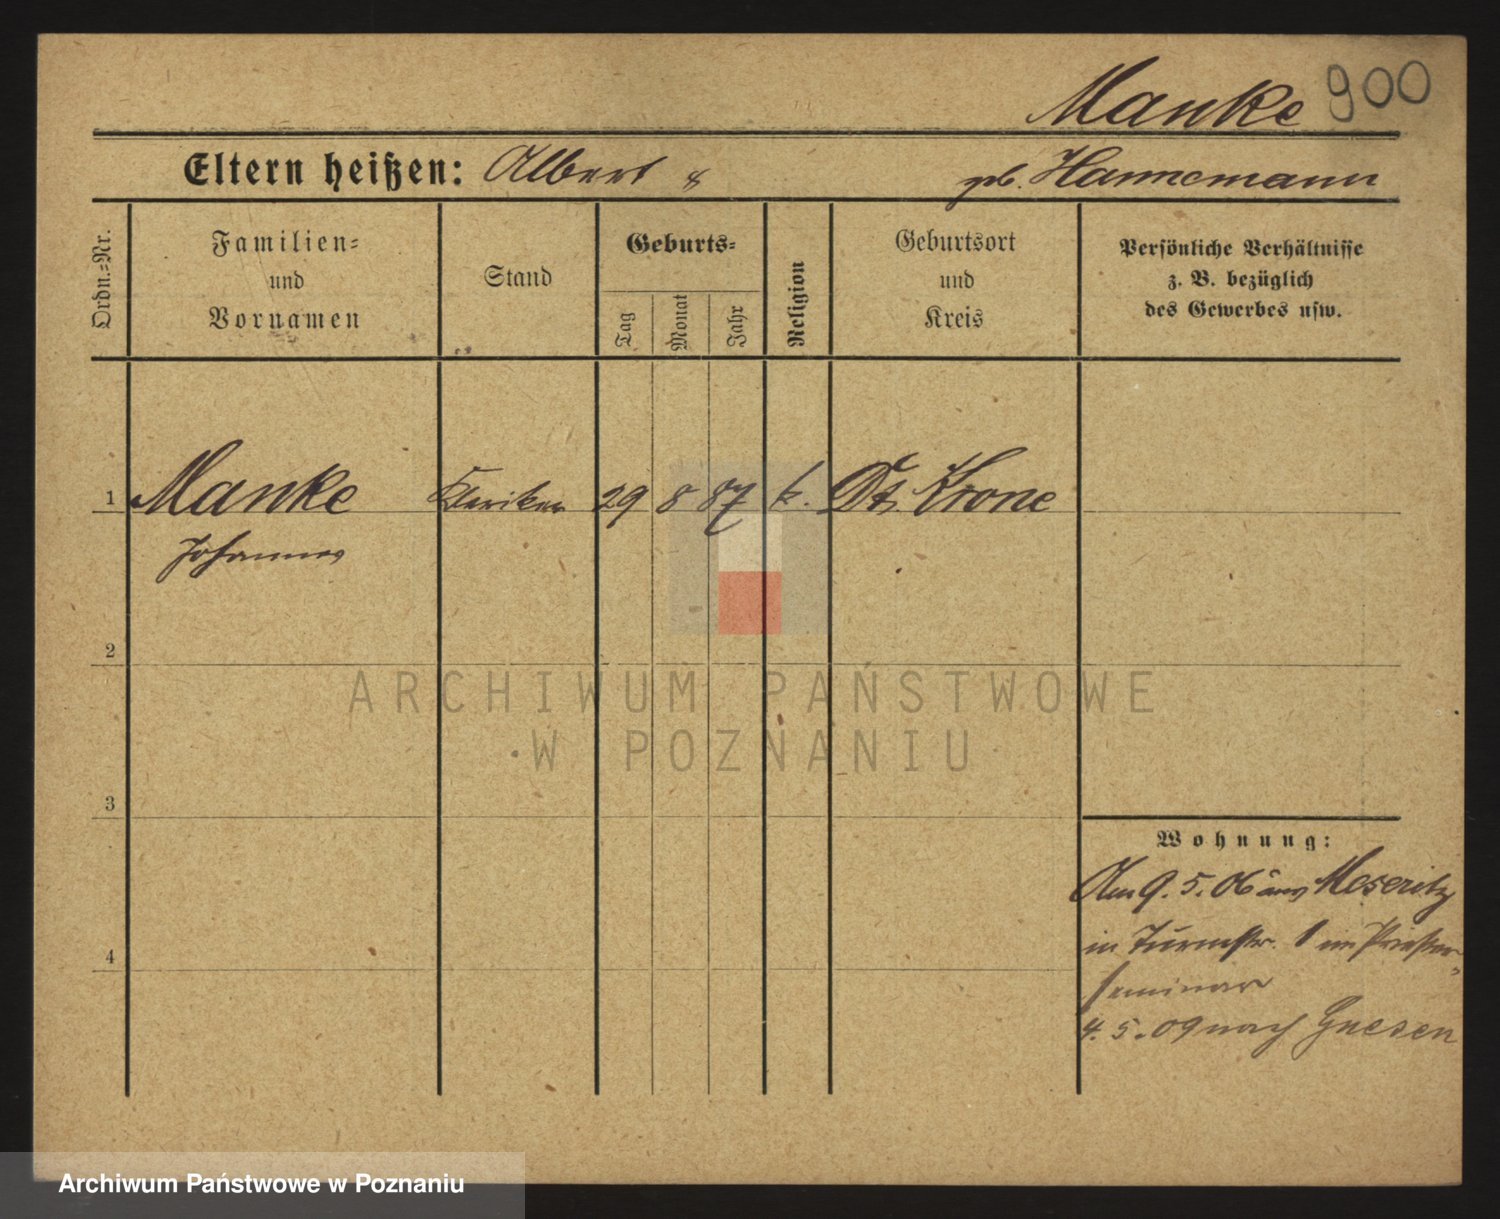 Manke 900
Eltern heißen: Albert & geb. Hannemann
Ordn.-Nr.
Familien-
und
Vornamen
Stand
Geburts-
Tag
Monat
Jahr
Religion
Geburtsort
und
Kreis
Persönliche Verhältnisse
z. B. bezüglich
des Gewerbes usw.
1 Manke Kleriker 29 8 87 k. Dt. Krone
Johannes
2
3
4
Wohnung:
Am 9. 5. 06 aus Meseritz
in Turmstr. 1 im Priester-
seminar
4. 5. 09 nach Gnesen
ARCHIWUM PAŃSTWOWE
W POZNANIU
Archiwum Państwowe w Poznaniu